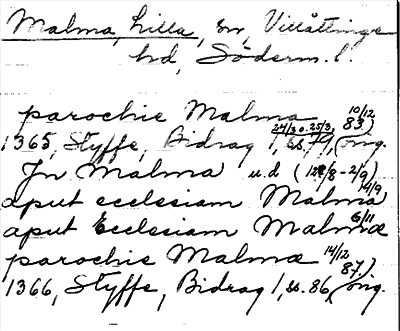 Malma, Lilla, sn, Villåttinge
hd, Söderm. l.
parochie Malma 10/12
1365, Styffe, Bidrag 1, ss. 79, 83, (orig.
24/3 o. 25/3
Jn Malma u.d (12/8-2/9)
aput ecclesiam Malma 4/9
aput Ecclesiam Malmæ 6/11
parochie Malma 14/12
1366, Styffe, Bidrag 1, ss. 86, 87, (orig.